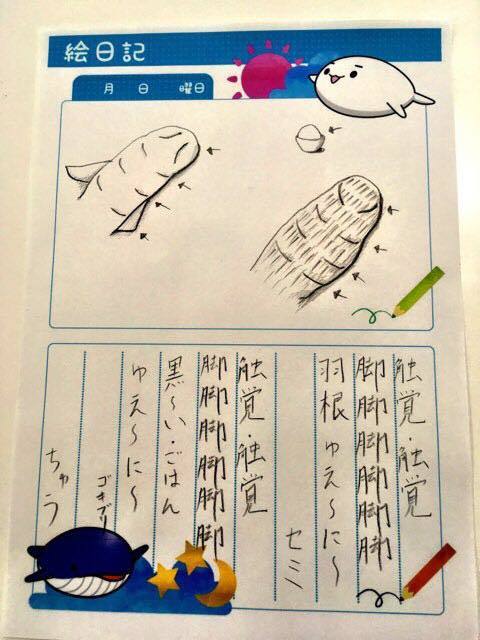 絵日記
月 日 曜日
触覚・触覚
脚脚脚脚脚脚
羽根 ゆえ〜に〜
セミ
触覚・触覚
脚脚脚脚脚脚
黒〜い・ごはん
ゆえ〜に〜
ゴキブリ
ちゅう